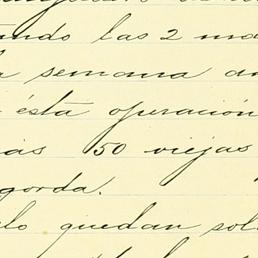 ando las 2 ma
semana an
ésta operación
más 50 viejas
gorda.
lo quedan sol